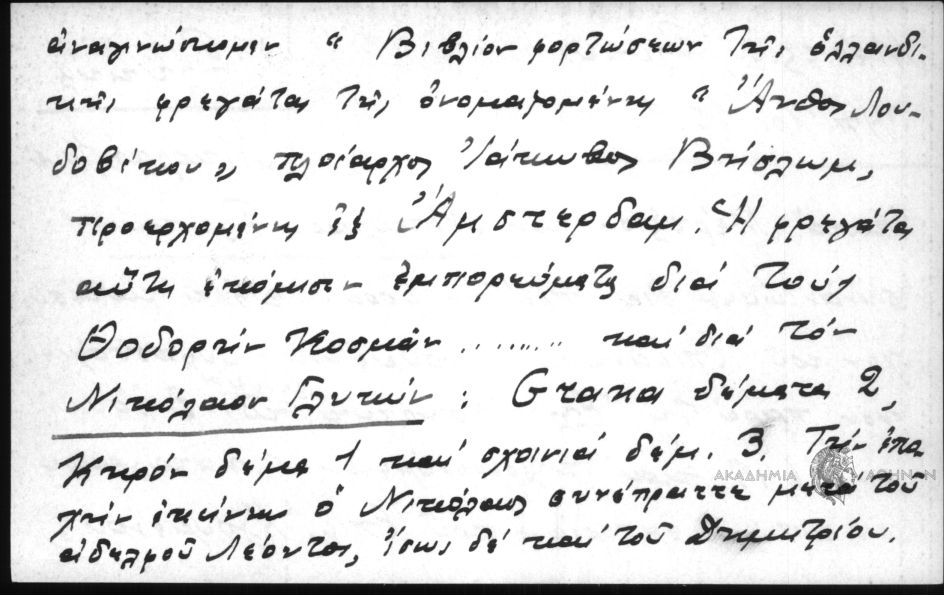 ἀναγινώσκομεν " Βιβλίον φορτώσεων τῆς ὁλλανδι-
κῆς φρεγάτας τῆς ὀνομαζομένης " Ἄνθος Λου-
δοβίκου", πλοίαρχος Ἰάκωβος Βιίσλωμ,
προερχομένης ἐξ Ἀμστερδαμ. Ἡ φρεγάτα
αὕτη ἐκόμισεν ἐμπορεύματα διά τούς
Θοδορήν Κοσμᾶν ......... καί διά τόν
Νικόλαον Γλυκύν : Grana δέματα 2,
Κηρόν δέμα 1 καί σχοινιά δέμ. 3. Τήν ἐπο
χήν ἐκείνην ὁ Νικόλαος συνέπραττε μετά τοῦ
ἀδελφοῦ Λέοντος, ἴσως δέ καί τοῦ Δημητρίου.
ΑΚΑΔΗΜΙΑ ΑΘΗΝΩΝ